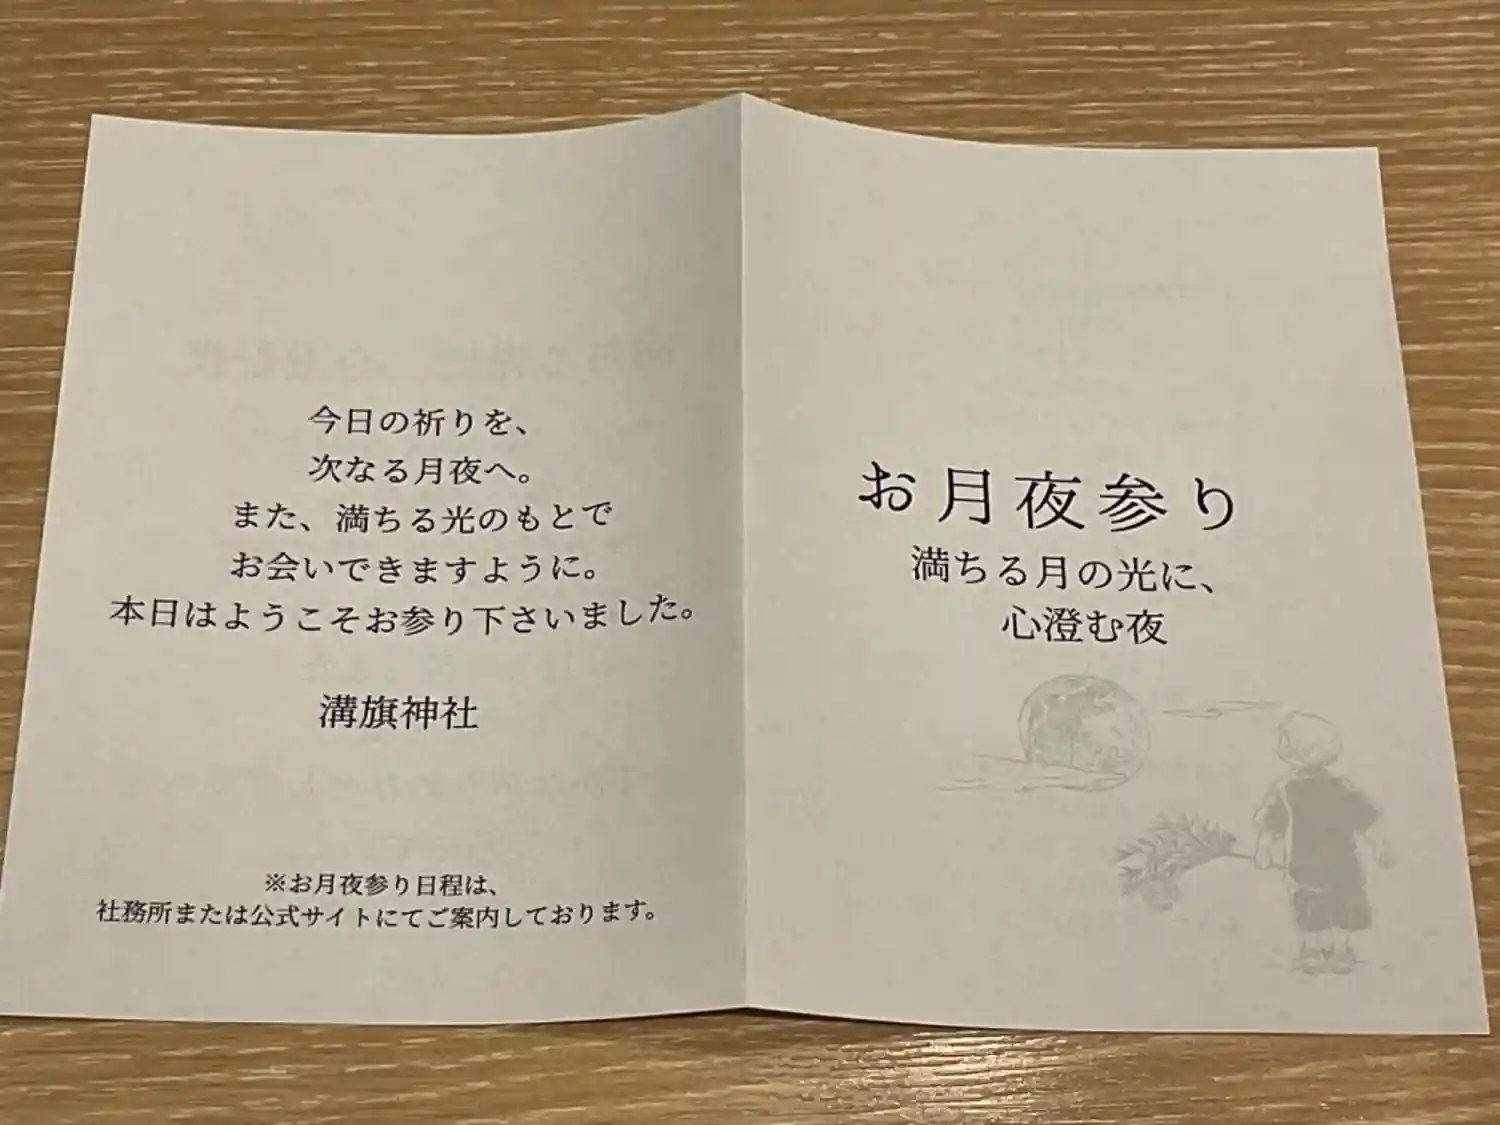 お月夜参り
満ちる月の光に、
心澄む夜
今日の祈りを、
次なる月夜へ。
また、満ちる光のもとで
お会いできますように。
本日はようこそお参り下さいました。
溝旗神社
※お月夜参り日程は、
社務所または公式サイトにてご案内しております。